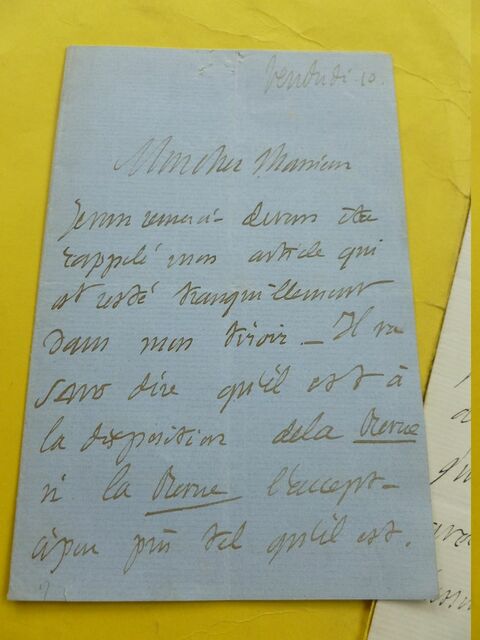 Vendredi 10.
Mon cher Monsieur
Je vous remerci- de vous être
rappelé mon article qui
est resté tranquillement
dans mon tiroir _ Il va
sans dire qu'il est à
la disposition de la Revue
si la Revue l'accept-
à peu près tel qu'il est.